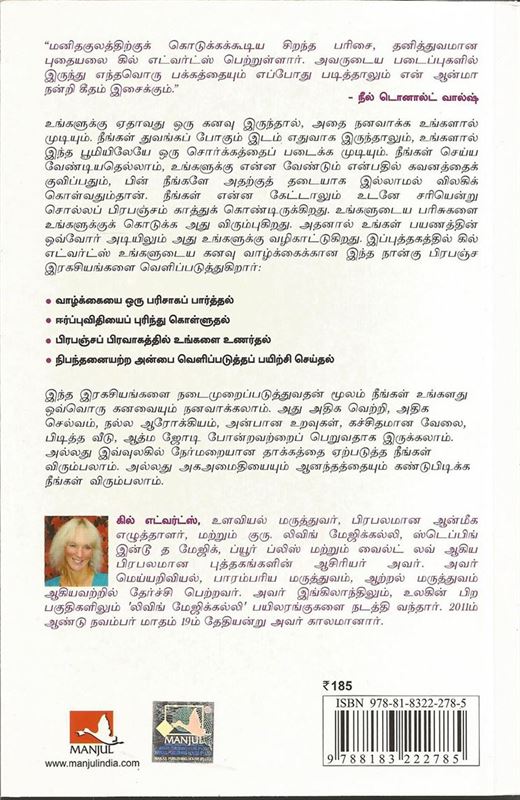 “மனிதகுலத்திற்குக் கொடுக்கக்கூடிய சிறந்த பரிசை, தனித்துவமான
புதையலை கில் எட்வர்ட்ஸ் பெற்றுள்ளார். அவருடைய படைப்புகளில்
இருந்து எந்தவொரு பக்கத்தையும் எப்போது படித்தாலும் என் ஆன்மா
நன்றி கீதம் இசைக்கும்.”
- நீல் டொனால்ட் வால்ஷ்
உங்களுக்கு ஏதாவது ஒரு கனவு இருந்தால், அதை நனவாக்க உங்களால்
முடியும். நீங்கள் துவங்கப் போகும் இடம் எதுவாக இருந்தாலும், உங்களால்
இந்த பூமியிலேயே ஒரு சொர்க்கத்தைப் படைக்க முடியும். நீங்கள் செய்ய
வேண்டியதெல்லாம், உங்களுக்கு என்ன வேண்டும் என்பதில் கவனத்தைக்
குவிப்பதும், பின் நீங்களே அதற்குத் தடையாக இல்லாமல் விலகிக்
கொள்வதும்தான். நீங்கள் என்ன கேட்டாலும் உடனே சரியென்று
சொல்லப் பிரபஞ்சம் காத்துக் கொண்டிருக்கிறது. உங்களுடைய பரிசுகளை
உங்களுக்குக் கொடுக்க அது விரும்புகிறது. அதனால் உங்கள் பயணத்தின்
ஒவ்வோர் அடியிலும் அது உங்களுக்கு வழிகாட்டுகிறது. இப்புத்தகத்தில் கில்
எட்வர்ட்ஸ் உங்களுடைய கனவு வாழ்க்கைக்கான இந்த நான்கு பிரபஞ்ச
இரகசியங்களை வெளிப்படுத்துகிறார்:
• வாழ்க்கையை ஒரு பரிசாகப் பார்த்தல்
• ஈர்ப்புவிதியைப் புரிந்து கொள்ளுதல்
• பிரபஞ்சப் பிரவாகத்தில் உங்களை உணர்தல்
• நிபந்தனையற்ற அன்பை வெளிப்படுத்தப் பயிற்சி செய்தல்
இந்த இரகசியங்களை நடைமுறைப்படுத்துவதன் மூலம் நீங்கள் உங்களது
ஒவ்வொரு கனவையும் நனவாக்கலாம். அது அதிக வெற்றி, அதிக
செல்வம், நல்ல ஆரோக்கியம், அன்பான உறவுகள், கச்சிதமான வேலை,
பிடித்த வீடு, ஆத்ம ஜோடி போன்றவற்றைப் பெறுவதாக இருக்கலாம்.
அல்லது இவ்வுலகில் நேர்மறையான தாக்கத்தை ஏற்படுத்த நீங்கள்
விரும்பலாம். அல்லது அகஅமைதியையும் ஆனந்தத்தையும் கண்டுபிடிக்க
நீங்கள் விரும்பலாம்.
கில் எட்வர்ட்ஸ், உளவியல் மருத்துவர், பிரபலமான ஆன்மீக
எழுத்தாளர், மற்றும் குரு. லிவிங் மேஜிக்கல்லி, ஸ்டெப்பிங்
இன்டூ த மேஜிக், ப்யூர் ப்லிஸ் மற்றும் வைல்ட் லவ் ஆகிய
பிரபலமான புத்தகங்களின் ஆசிரியர் அவர். அவர்
மெய்யறிவியல், பாரம்பரிய மருத்துவம், ஆற்றல் மருத்துவம்
ஆகியவற்றில் தேர்ச்சி பெற்றவர். அவர் இங்கிலாந்திலும், உலகின் பிற
பகுதிகளிலும் 'லிவிங் மேஜிக்கல்லி' பயிலரங்குகளை நடத்தி வந்தார். 2011ம்
ஆண்டு நவம்பர் மாதம் 19ம் தேதியன்று அவர் காலமானார்.
₹ 185
ISBN 978-81-8322-278-5
9 788183 222785
MANJUL
www.manjulindia.com
MANJUL